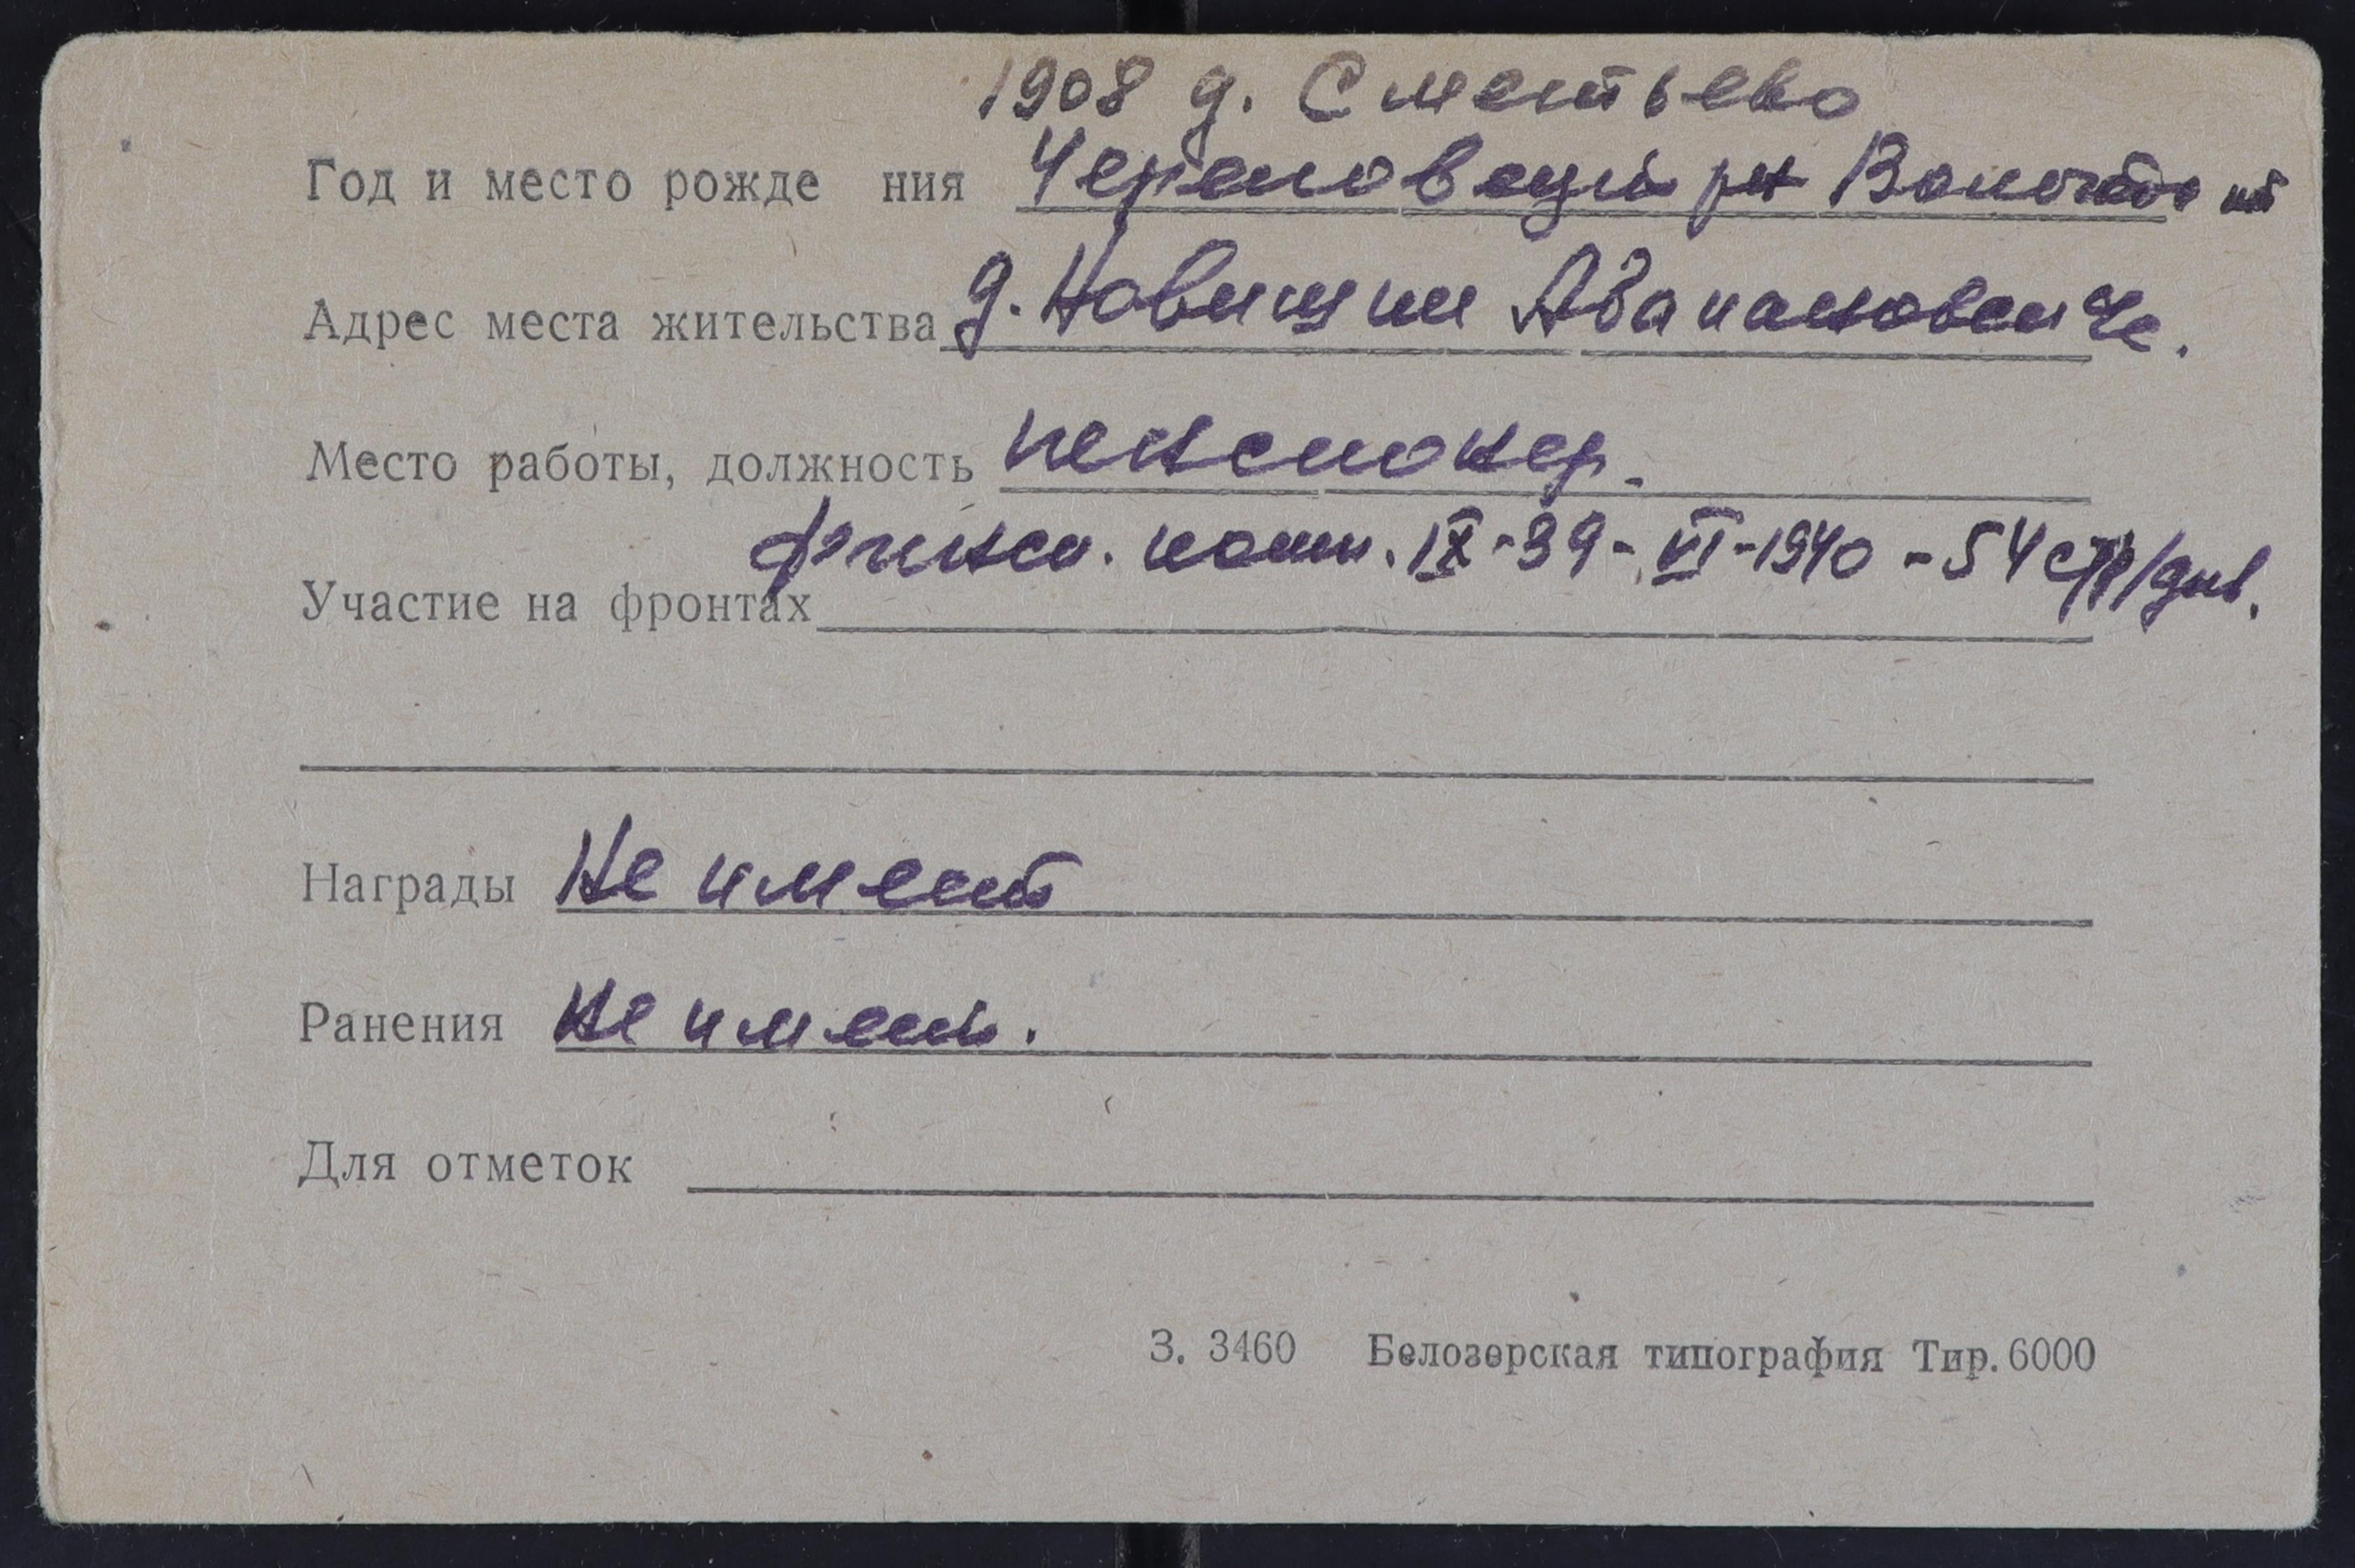 1908 д. Сментьево
Год и место рожде ния Череповецкий рн Вологодс
Адрес места жительства д. Новищки
Место работы, должность пенсионер.
финск. комп. IX-39-VI-1940 - 54 стр/див.
Участие на фронтах
Награды Не имеет
Ранения Не имеет.
Для отметок
З. 3460 Белозерская типография Тир. 6000